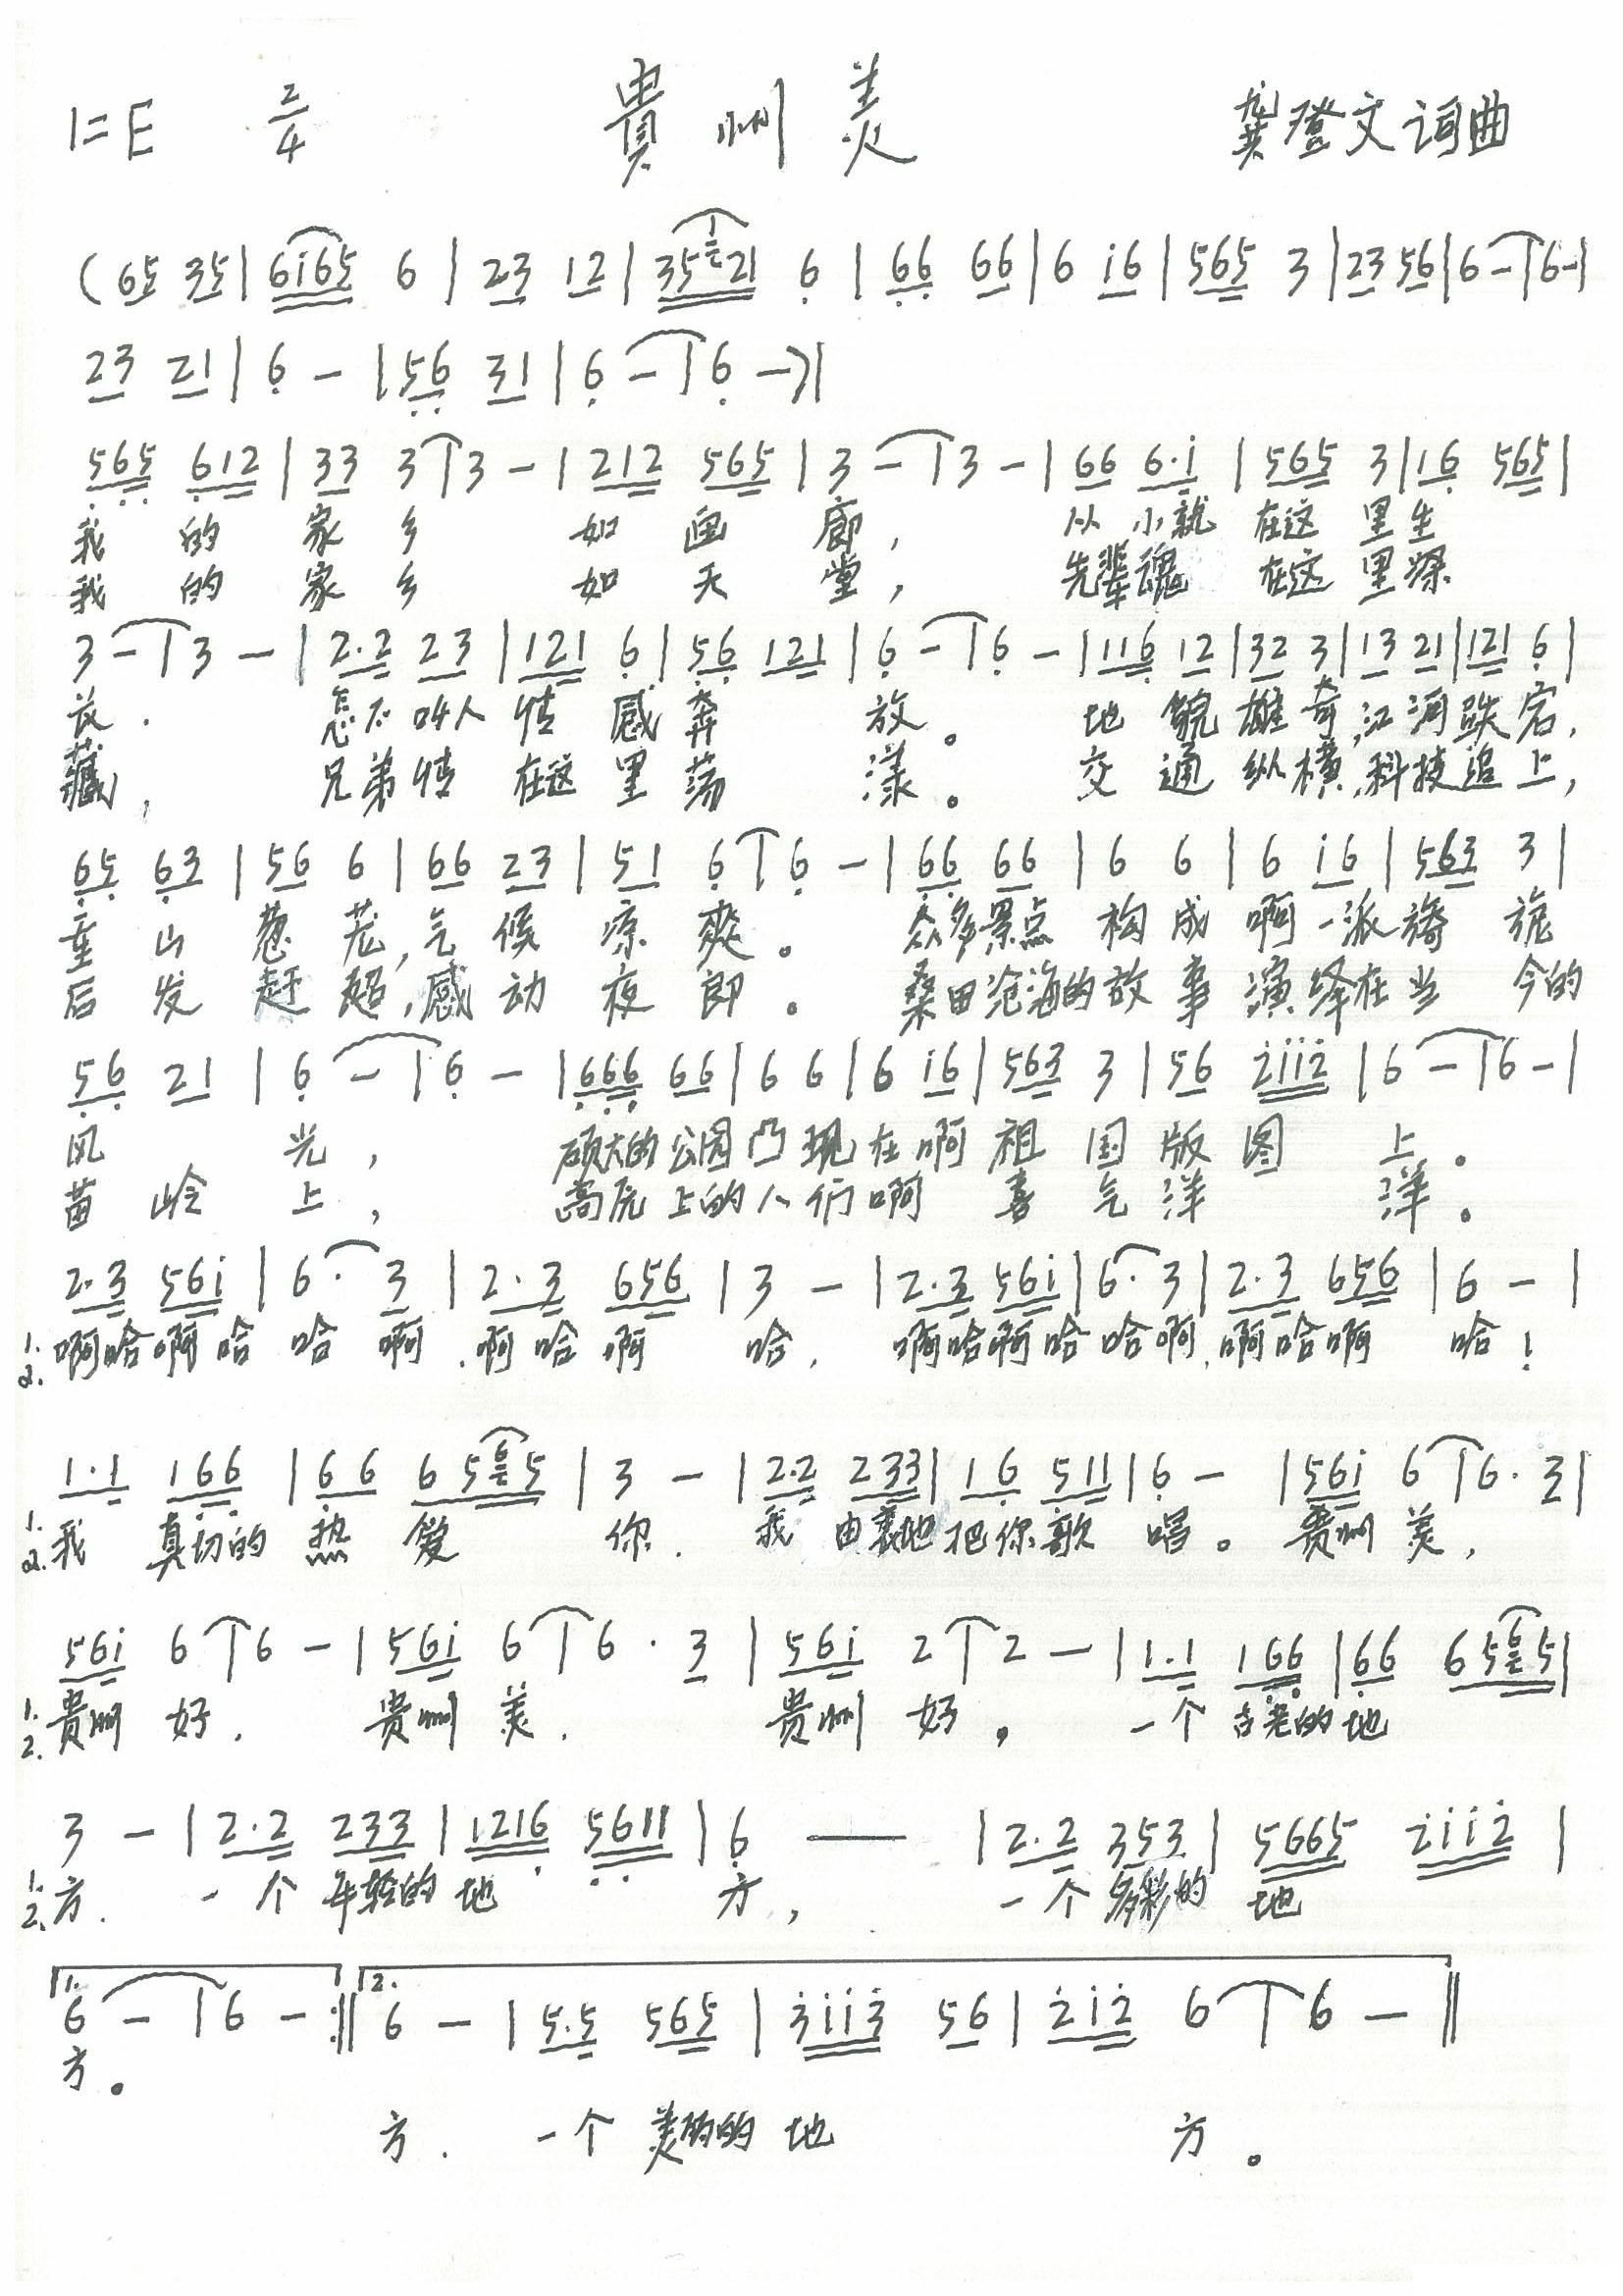 1=E 2/4 貴州美 龚登文词曲
(65 35|6i65 6|23 12|35221 6|66 66|6 i6|565 3|23 56|6-|6-|
23 21|6-|56 31|6-|6-)|
565 612|33 3|3-|212 565|3-|3-|66 6·i|565 3|16 565|
我的家乡如画廊,从小就在这里生
我的家乡如天堂,先辈魂在这里深
3-|3-|2·2 23|121 6|56 121|6-|6-|116 12|32 3|13 21|121 6|
长.怎不叫人情感奔放。地貌雄奇,江河跌宕,
藏,兄弟情在这里荡漾。交通纵横,科技追上,
65 63|56 6|66 23|51 6|6-|66 66|6 6|6 i6|563 3|
重山葱茏,气候凉爽。众多景点构成啊一派旖旎
后发赶超,感动夜郎。桑田沧海的故事演绎在当今的
56 21|6-|6-|666 66|6 6|6 i6|563 3|56 2ii2|6-|6-|
风光,硕大的公园凸现在啊祖国版图上。
苗岭上,高原上的人们啊喜气洋洋。
2·3 56i|6·3|2·3 656|3-|2·3 56i|6·3|2·3 656|6-|
1. 2. 啊哈啊哈哈啊.啊哈啊哈.啊哈啊哈哈啊.啊哈啊哈!
1·1 166|66 6565|3-|2·2 233|16 511|6-|56i 6|6·3|
1. 2. 我真切的热爱你.我由衷地把你歌唱。贵州美,
56i 6|6-|56i 6|6·3|56i 2|2-|1·1 166|66 6565|
1. 2. 贵州好.贵州美.贵州好。一个古老的地
3-|2·2 233|1216 5611|6—|2·2 353|5665 2ii2|
1. 2. 方.一个年轻的地方,一个多彩的地
1. 6-|6-:‖ 2. 6-|5·5 565|3ii3 56|2i2 6|6-‖
方。
方.一个美丽的地方。